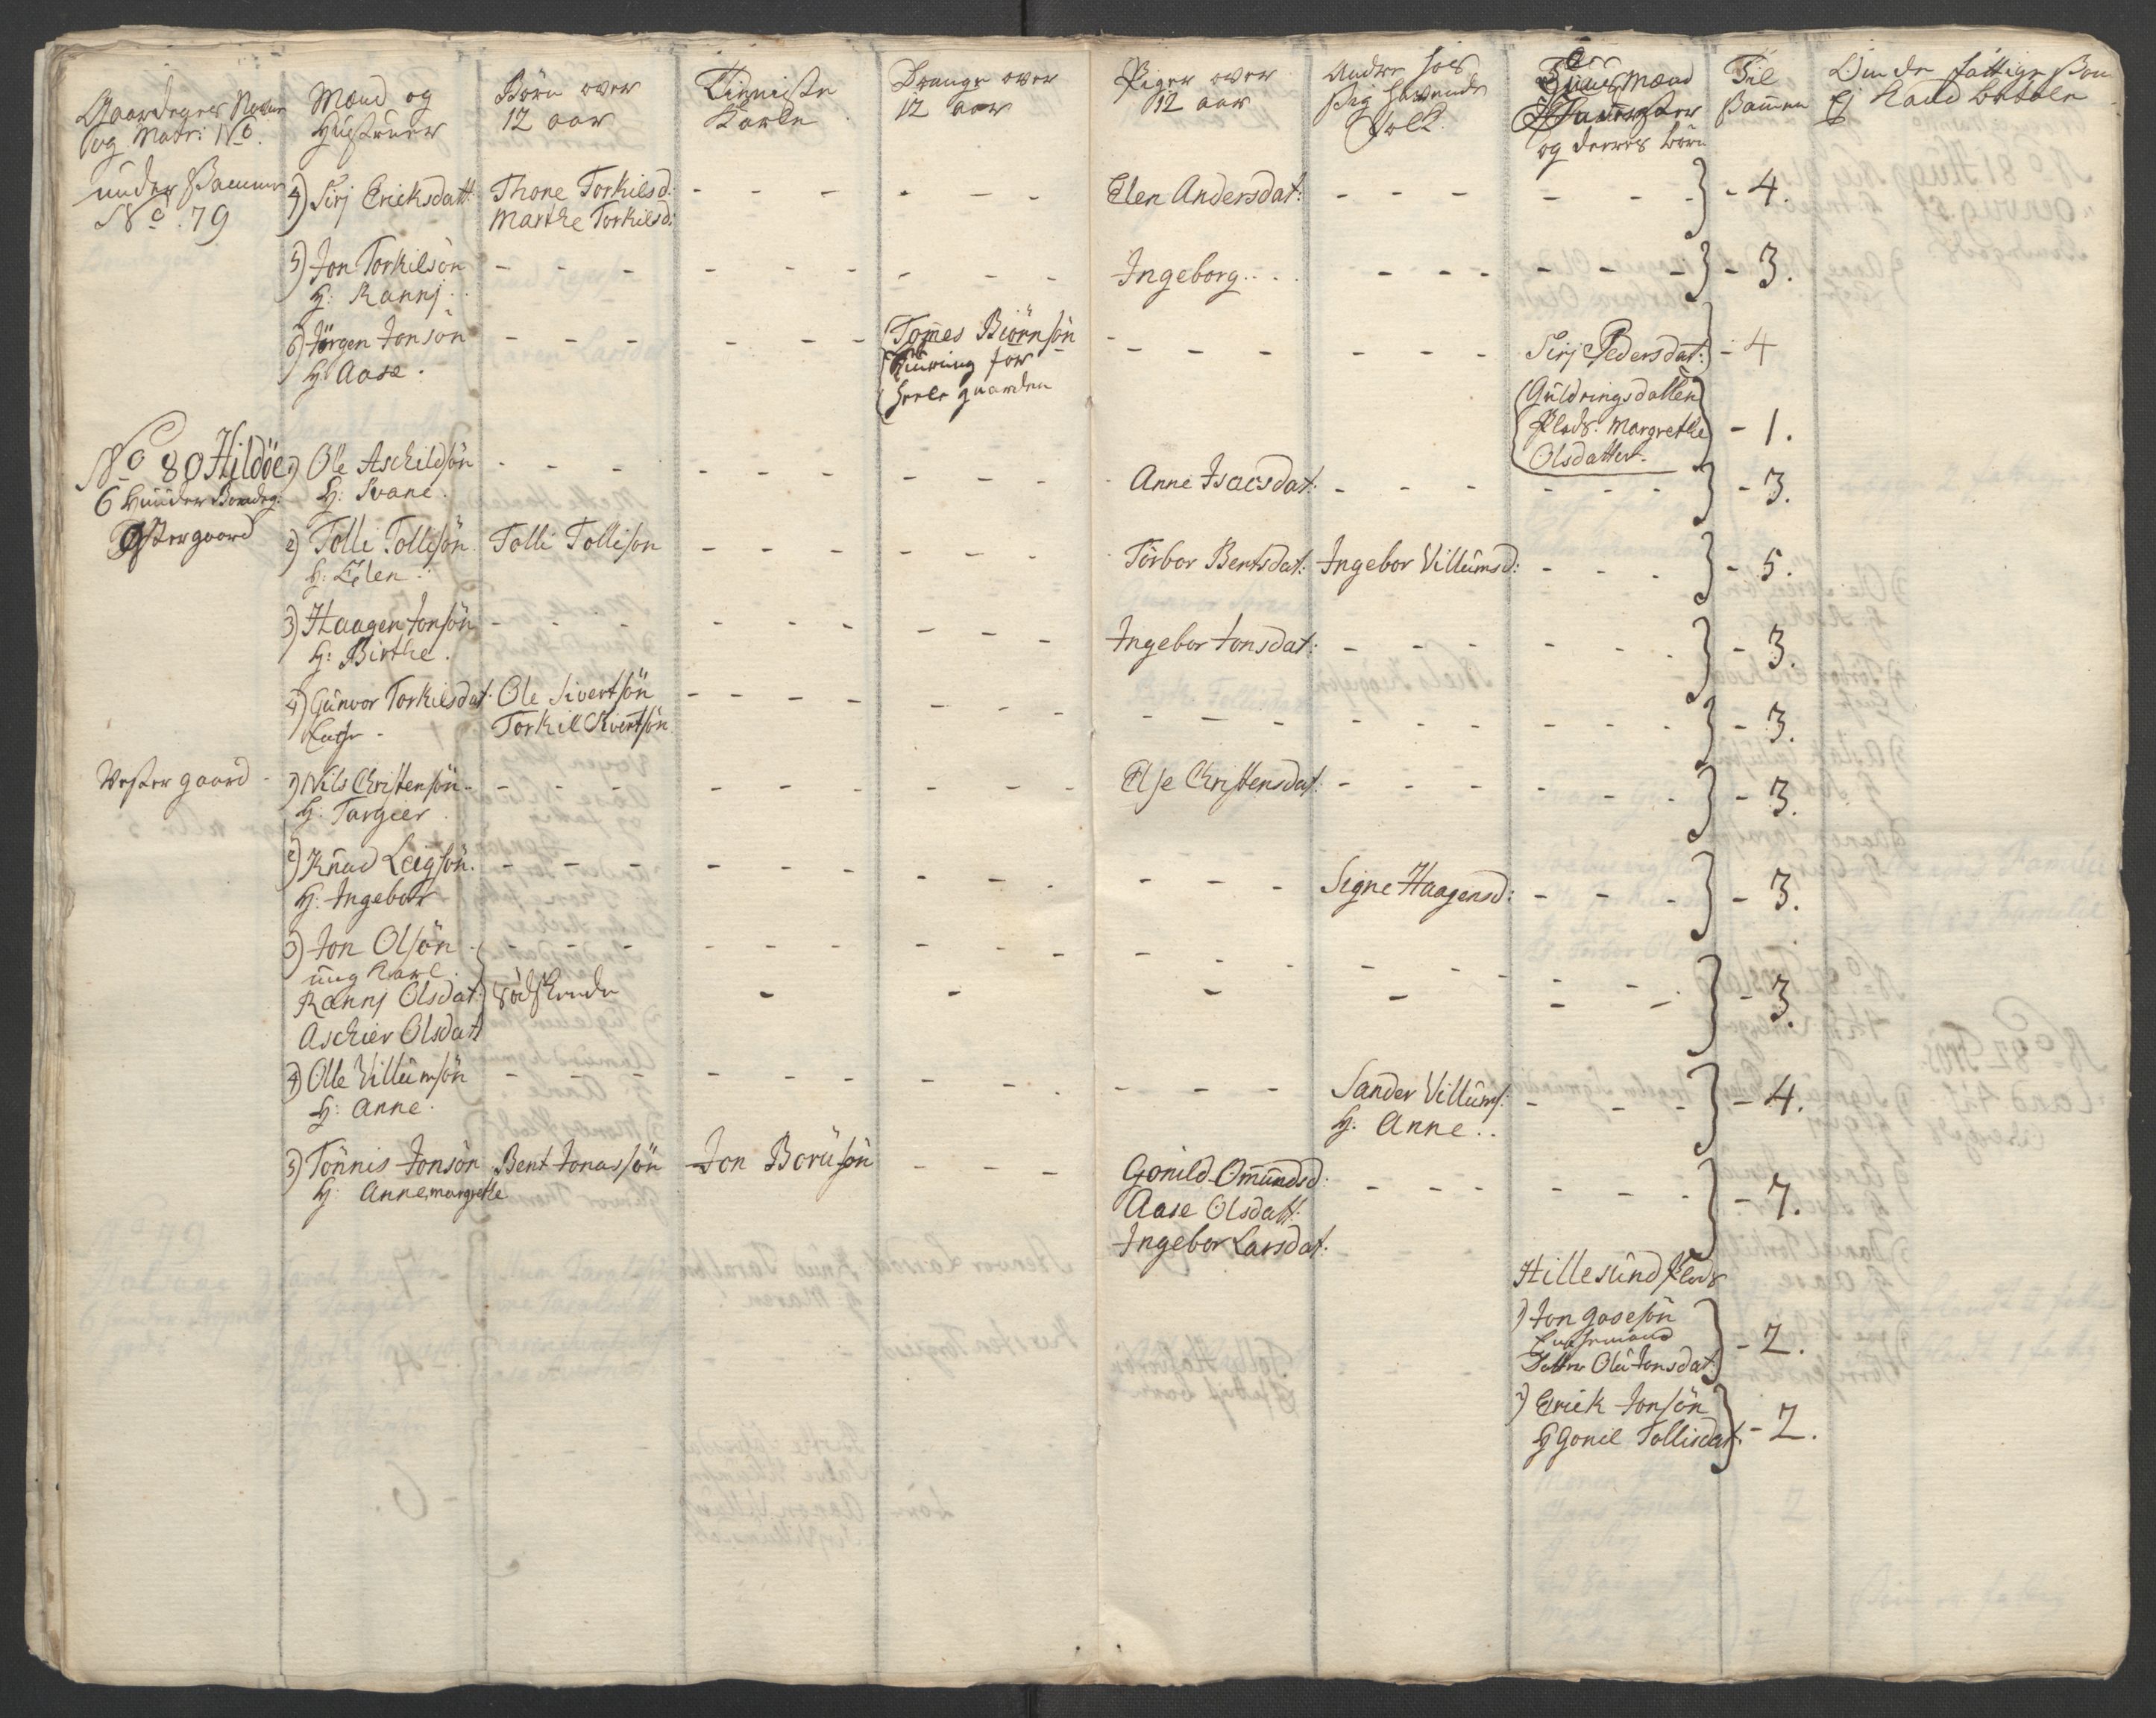 Gaardegnes Nafne
og Matr: No
Mænd og
Hustruer
Børn over
12 aar
Tienniste
Karle
Drænge over
12 aar
Piger over
12 aar
Andre hos
sig havende
Folk
Huusmænd
og derres børn
Til
sammen
Ej Kand betale
under samme
No 79
4) Sirj Ericksdatt:
Thone Torkilsd:
Marthe Torkilsd:
Elen Andersdat:
- 4.
5) Jon Torkilsön
H: Rannj
Ingeborg
- 3.
6) Jörgen Jonsön
H: Aase.
Tomes Biörnsön
for
heele gaarden
Sirj Pedersdat:
- 4
Guldringsdallen
Plads. Margrethe
Olsdatter.
- 1.
No 80 Hildöe
6 Huuder Bondeg:
Östergaard
1) Ole Aschildsön
H: Svane.
Anne Isacsdat:
- 3.
2) Tolli Tollisön
H: Elen
Tolli Tollison
Torbor Bentsdat:
Ingebor Villumsd:
- 5.
3) Haagen Jonsön
H: Birthe.
Ingebor Jonsdat:
- 3.
4) Gunvor Torkilsdat.
Enche
Ole Sivertsön
Torkil Sivertsön
- 3.
Vestergaard
1) Nils Christensön
H: Targier
Else Christensdat:
- 3.
2) Knud Leigsön.
H: Ingebor
Signe Haagensd:
- 3.
3) Jon Olsön
ung Karl.
Rannj Olsdat:
Aschier Olsdat
Södskende
- 3.
4) Olle Villumsön
H: Anne.
Sander Villums:
H: Anne.
- 4.
5) Tönnis Jonsön
H: Annemargrethe
Bent Jonassön
Jon Borusön
Gonild Omundsd:
Aase Olsdatt:
Ingebor Larsdat.
- 7.
Hillesund Plads
1) Jon Gasesön
Enchemand
Datter Olu Jonsdat:
- 2.
2) Erick Jonsön
H Gonil Tollisdat.
- 2.